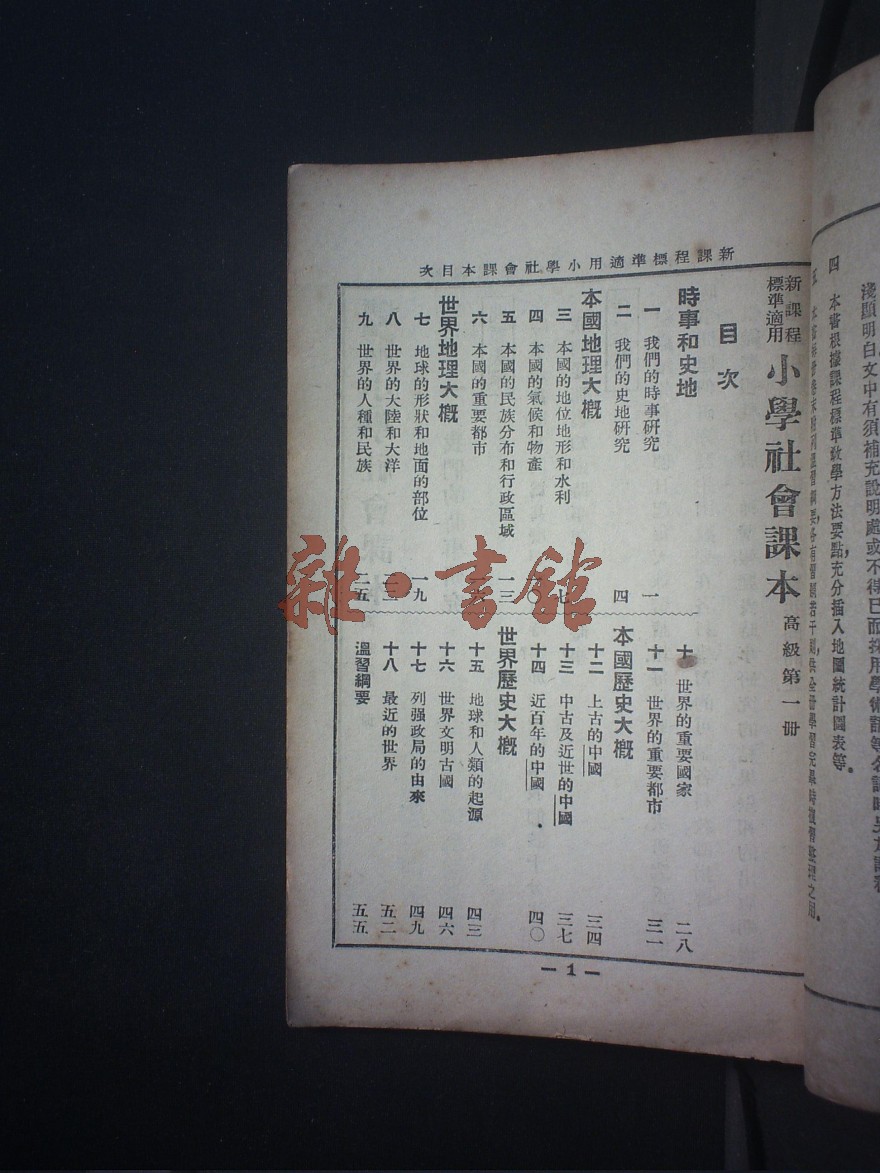 淺顯明白.文中有須補充說明處或不得已而採用學術語等名詞時
四　本書根據課程標準教學方法要點,充分插入地圖統計圖表等.
五　本書　溫習綱要,各有習題若干則,供全冊學習完畢時複習整理之用.
新課程標準適用小學社會課本目次
新課程標準適用　小學社會課本　高級第一冊
目次
時事和史地
一　我們的時事研究　一
二　我們的史地研究　四
本國地理大概
三　本國的地位地形和水利　七
四　本國的氣候和物產　〇
五　本國的民族分布和行政區域　一三
六　本國的重要都市
世界地理大概
七　地球的形狀和地面的部位　一九
八　世界的大陸和大洋
九　世界的人種和民族　二五
十　世界的重要國家　二八
十一　世界的重要都市　三一
本國歷史大概
十二　上古的中國　三四
十三　中古及近世的中國　三七
十四　近百年的中國　四〇
世界歷史大概
十五　地球和人類的起源　四三
十六　世界文明古國　四六
十七　列强政局的由來　四九
十八　最近的世界　五二
溫習綱要　五五
— 1 —
雜·書館